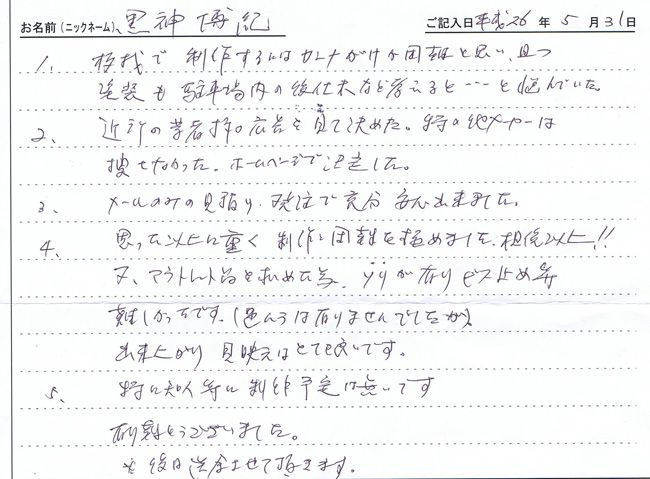 お名前(ニックネーム)、黒神 博紀 ご記入日 平成26年 5月31日
1、 で 制作するにはカンナがけが困難と思い、且つ
塗装も駐車場内の後仕末など考えると…と悩んでいた。
2、 近所の業者様の広告を見て決めた。特に他メーカーは
捜さなかった。ホームページで注文した。
3、 メールのみの見積り、発注で充分 安心出来ました。
4、 思った以上に重く 制作に困難を極めました。想像以上!!
又、アウトレット品を求めた為、ソリが有り ビス止め等
難しかったです。(色ムラは有りませんでしたが)
出来上がり 見映えはとても良いです。
5、 特に知人等に制作予定は無いです
有難とうございました。
後日送金させて頂きます。